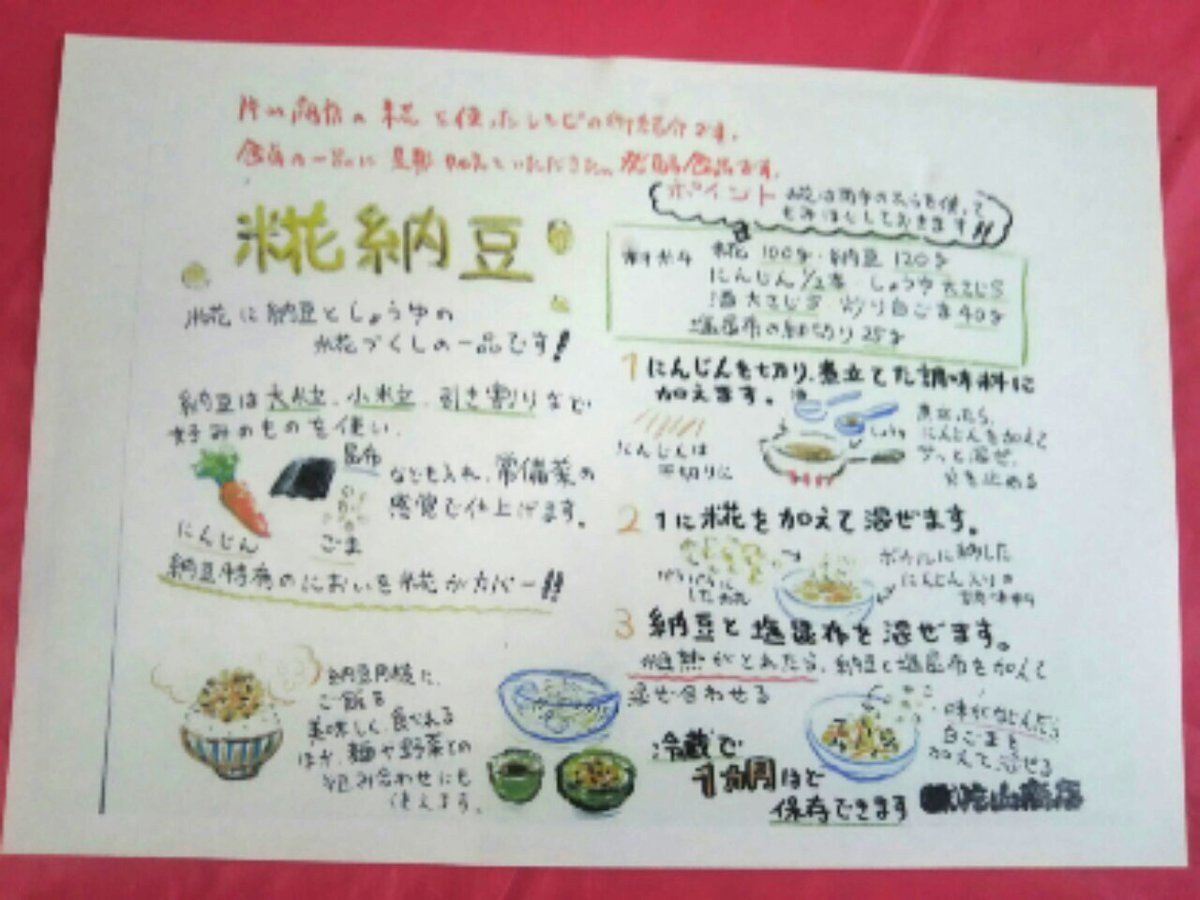 片山商店の糀を使ったレシピの御紹介です。
食卓の一品に是非加えていただきたい発酵食品です。
糀納豆
糀に納豆としょうゆの
糀づくしの一品です!
納豆は大粒、小粒、引き割りなど
好みのものを使い、
昆布
なども入れ、常備菜の
感覚で仕上げます。
にんじん
ごま
納豆特有のにおいを糀がカバー!!
納豆同様に、
ご飯を
美味しく食べれる
ほか、麺や野菜との
組み合わせにも
使えます。
ポイント 糀は両手のひらを使って
もみほぐしておきます!!
材料 糀 100g・納豆 120g
にんじん1/2本・しょうゆ 大さじ5
酒 大さじ5 炒り白ごま40g
塩昆布の細切り 25g
1 にんじんを切り、煮立てた調味料に
加えます。
酒
しょうゆ
にんじんは
千切りに
煮立ったら、
にんじんを加えて
サッと混ぜ、
火を止める
2 1に糀を加えて混ぜます。
ばらばらに
した糀
ボウルに移した
にんじん入りの
調味料
3 納豆と塩昆布を混ぜます。
粗熱がとれたら、納豆と塩昆布を加えて
混ぜ合わせる
味がなじんだら
白ごまを
加えて混ぜる
冷蔵で
1カ月ほど
保存できます
片山商店